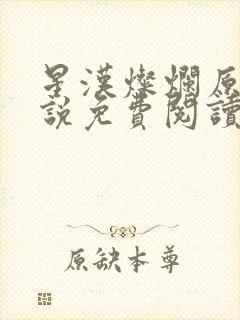 星漢燦爛原
說免費閱讀
原缺本尊